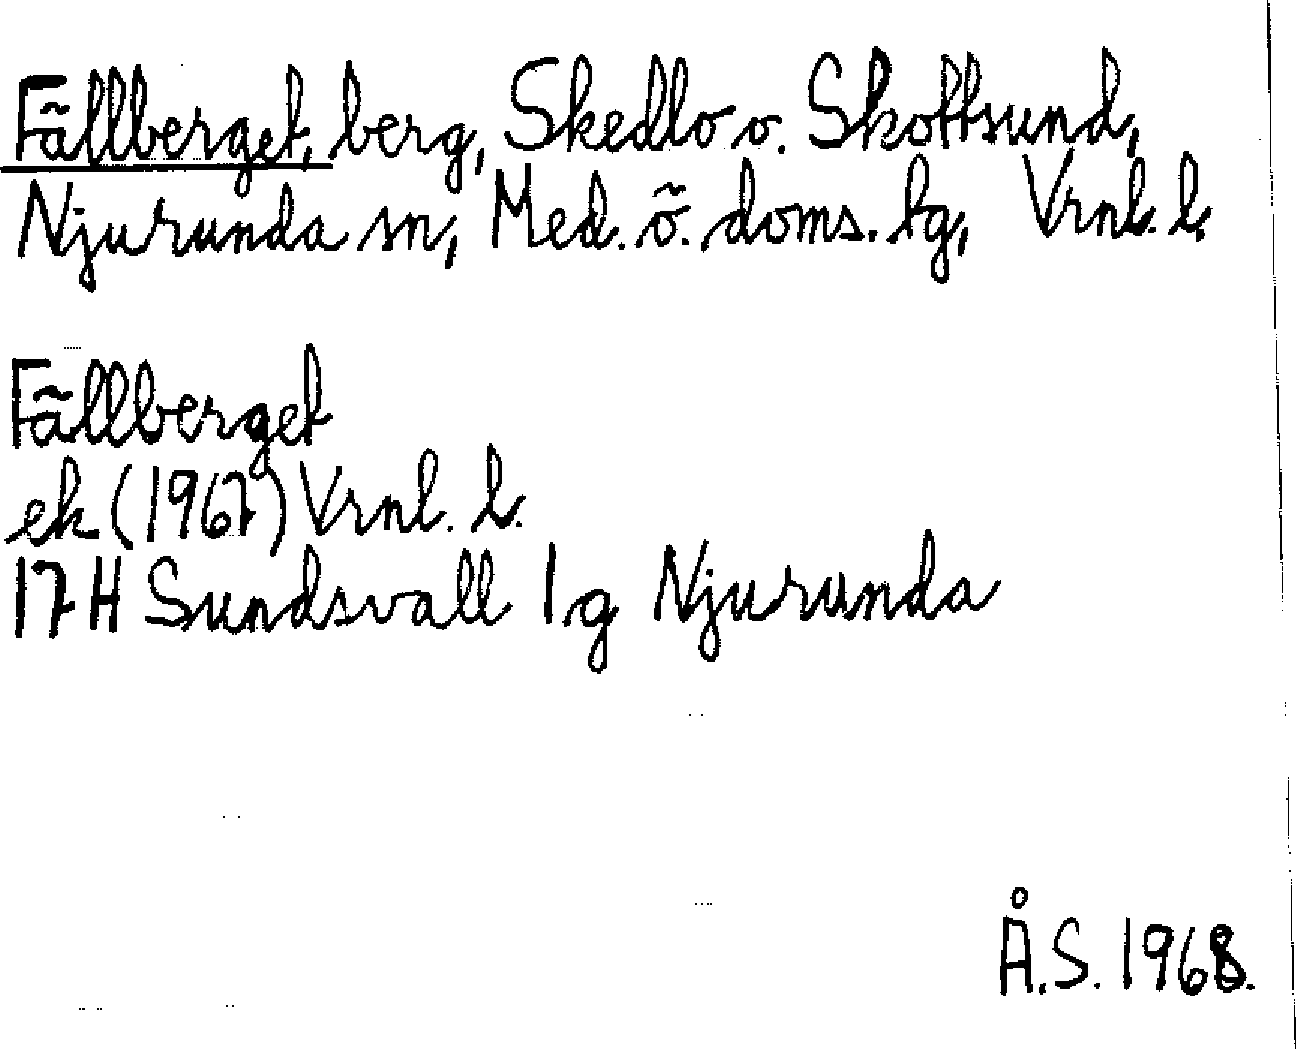 Fällberget, berg, Skedlo o. Skottsund,
Njurunda sn, Med. ö. doms. lg, Vrnl. l.
Fällberget
ek (1967) Vrnl. l.
17H Sundsvall 1g Njurunda
Å.S. 1968.